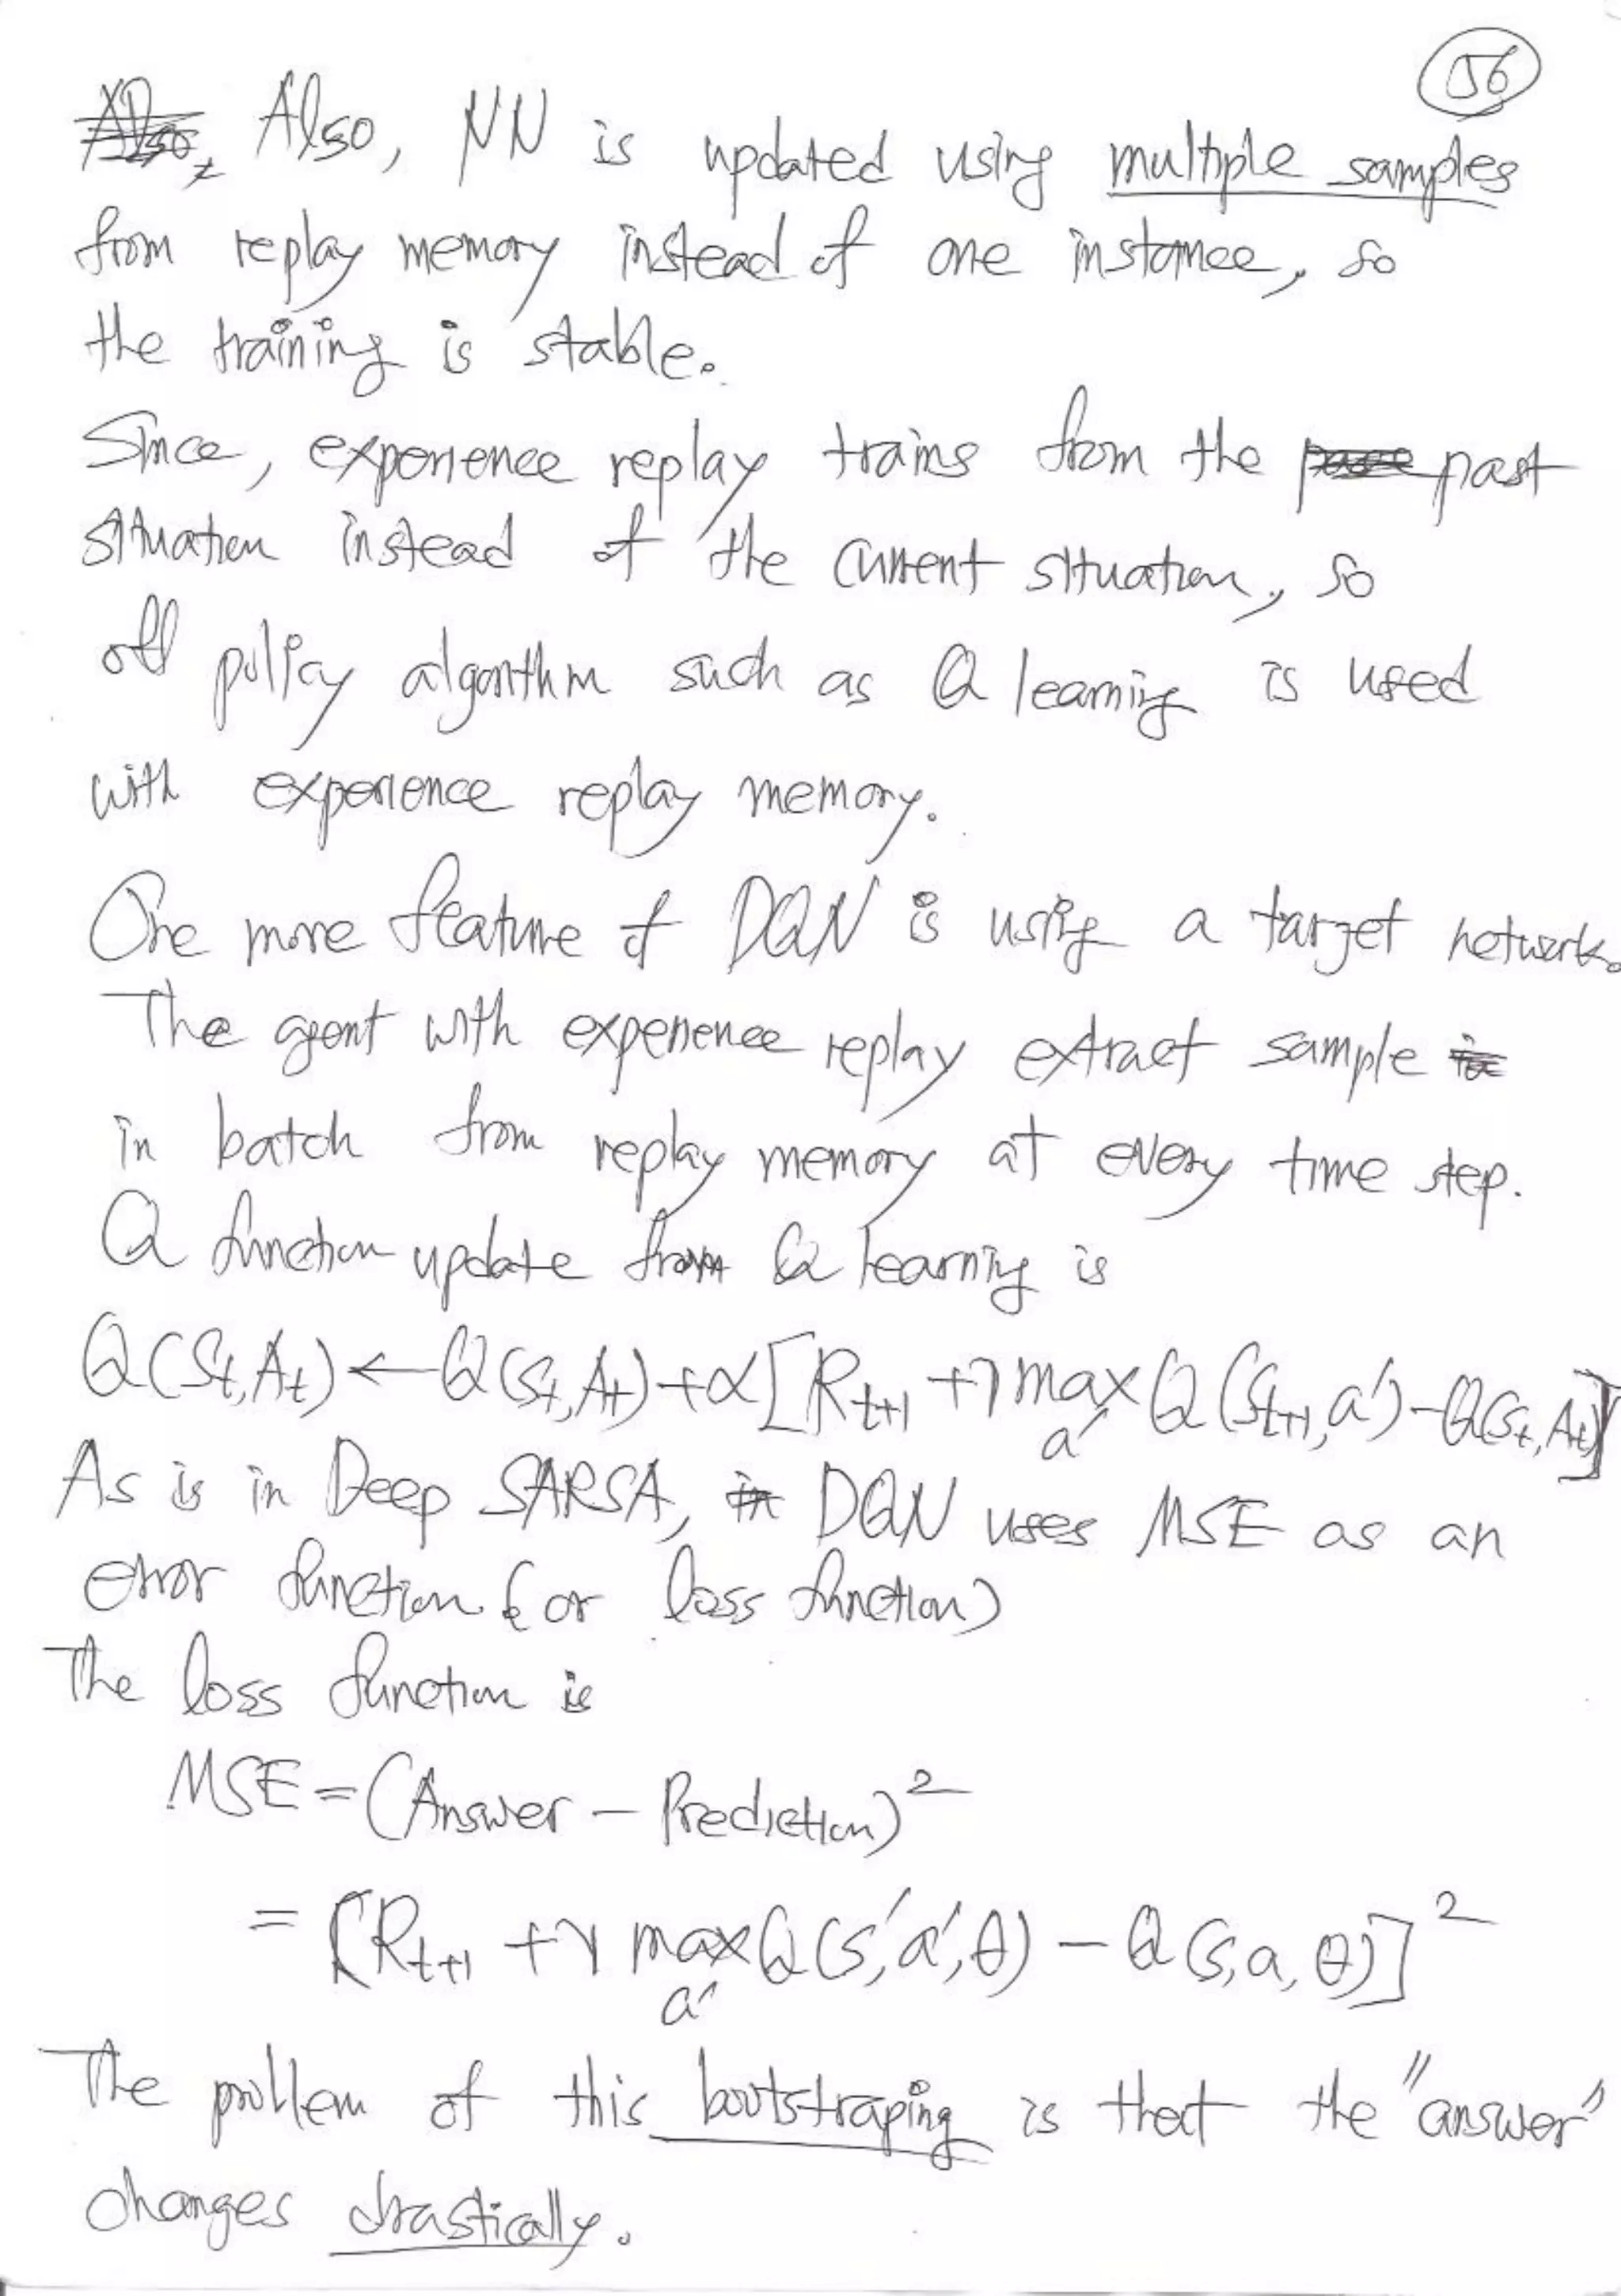 56
~~Also,~~ Also, NN is updated using multiple samples
from replay memory instead of one instance, so
the training is stable.
Since, experience replay trains from the past
situation instead of the current situation, so
off policy algorithm such as Q learning is used
with experience replay memory.
One more feature of DQN is using a target network.
The agent with experience replay extract sample
in batch from replay memory at every time step.
Q function update from Q learning is
Q(St,At)←Q(St,At)+α[Rt+1 +γ max a′ Q(St+1,a′)-Q(St,At)]
As is in Deep SARSA, ~~in~~ DQN uses MSE as an
error function (or loss function)
The loss function is
MSE=(Answer - Prediction)²
= [Rt+1 +γ max a′ Q(s′,a′,θ) - Q(s,a,θ)]²
The problem of this bootstraping is that the "answer"
changes drastically.